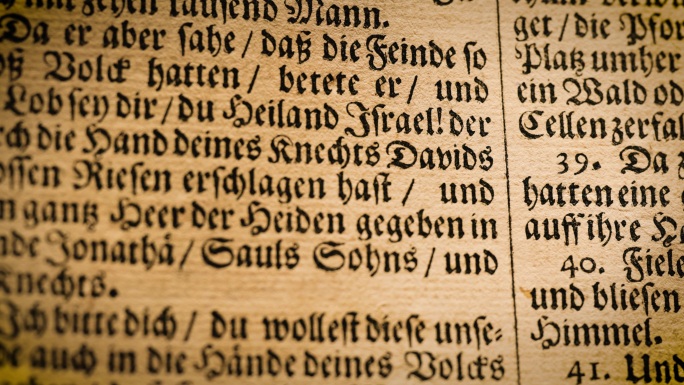 zehen tausend Mann.
Da er aber sahe / daß die Feinde so
Volck hatten / betete er / und
Lob sey dir / du Heiland Israel! der
die Hand deines Knechts Davids
Riesen erschlagen hast / und
gantz Heer der Heiden gegeben in
Jonathä / Sauls Sohns / und
Knechts.
Ich bitte dich / du wollest diese unse-
auch in die Hände deines Volcks
get / die
Platz umher
ein Wald
Cellen
39. Da
hatten eine
auff ihre
40.
und bliesen
Himmel.
41. Und